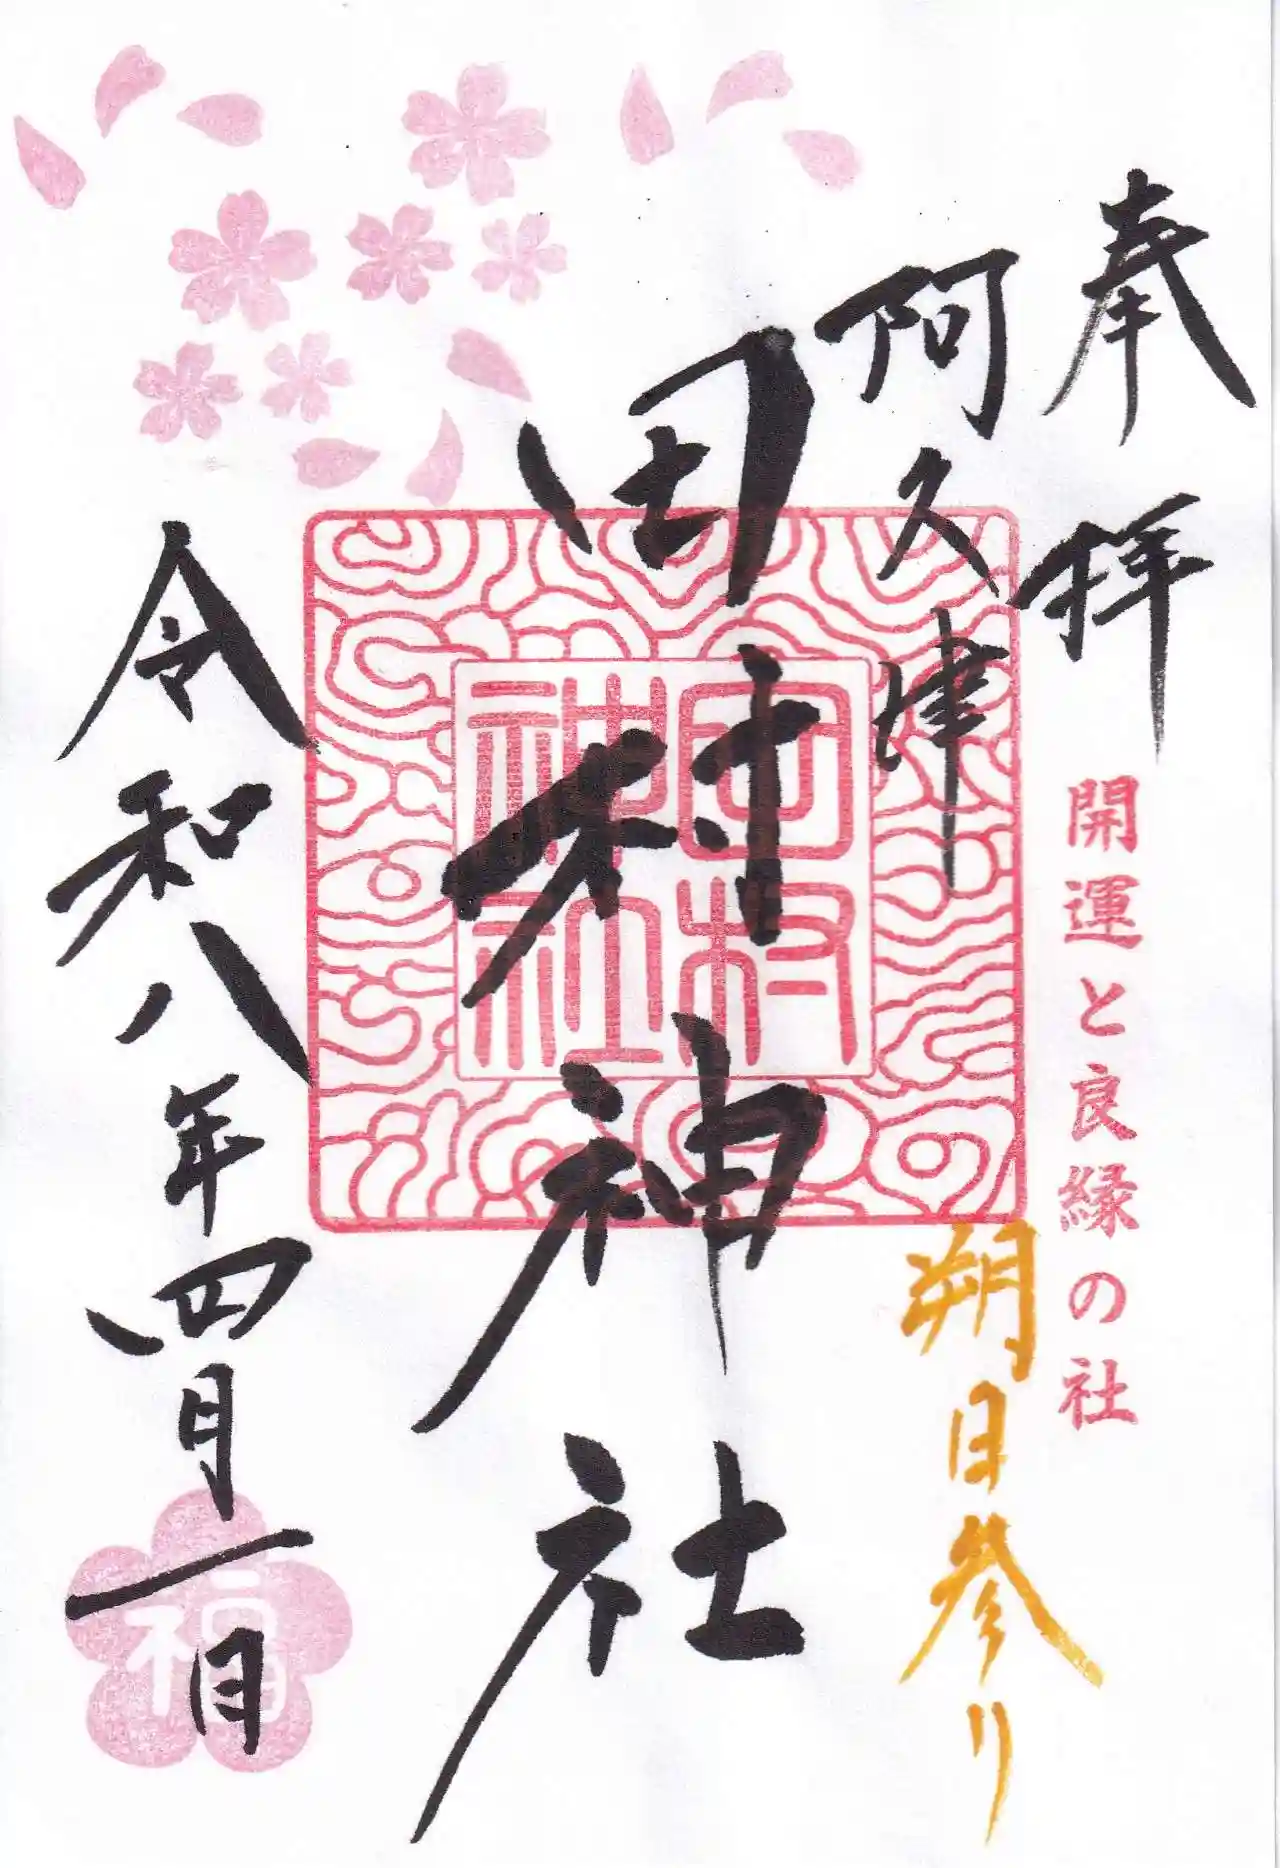 奉拝
開運と良縁の社
阿久津
朔日参り
田村神社
田村
神社
令和八年四月一日
福